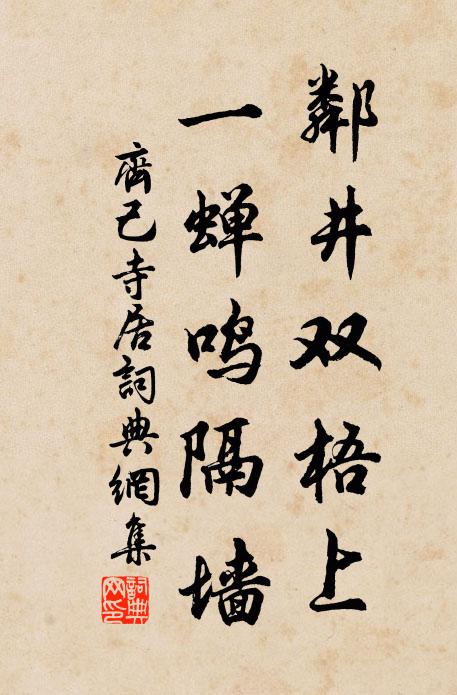 鄰井双梧上
一蝉鸣隔墙
齊己寺居詞典網集
詞典網印